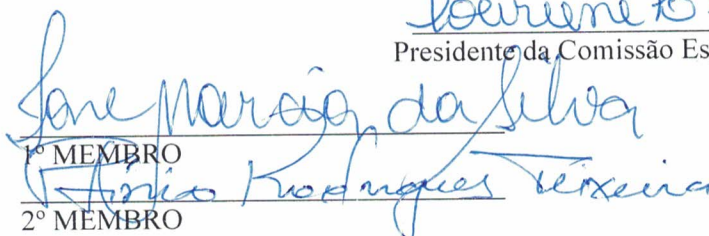 Presidente da Comissão Es
Jone Marcia da Silva
1º MEMBRO
Rodrigues Teixeira
2º MEMBRO